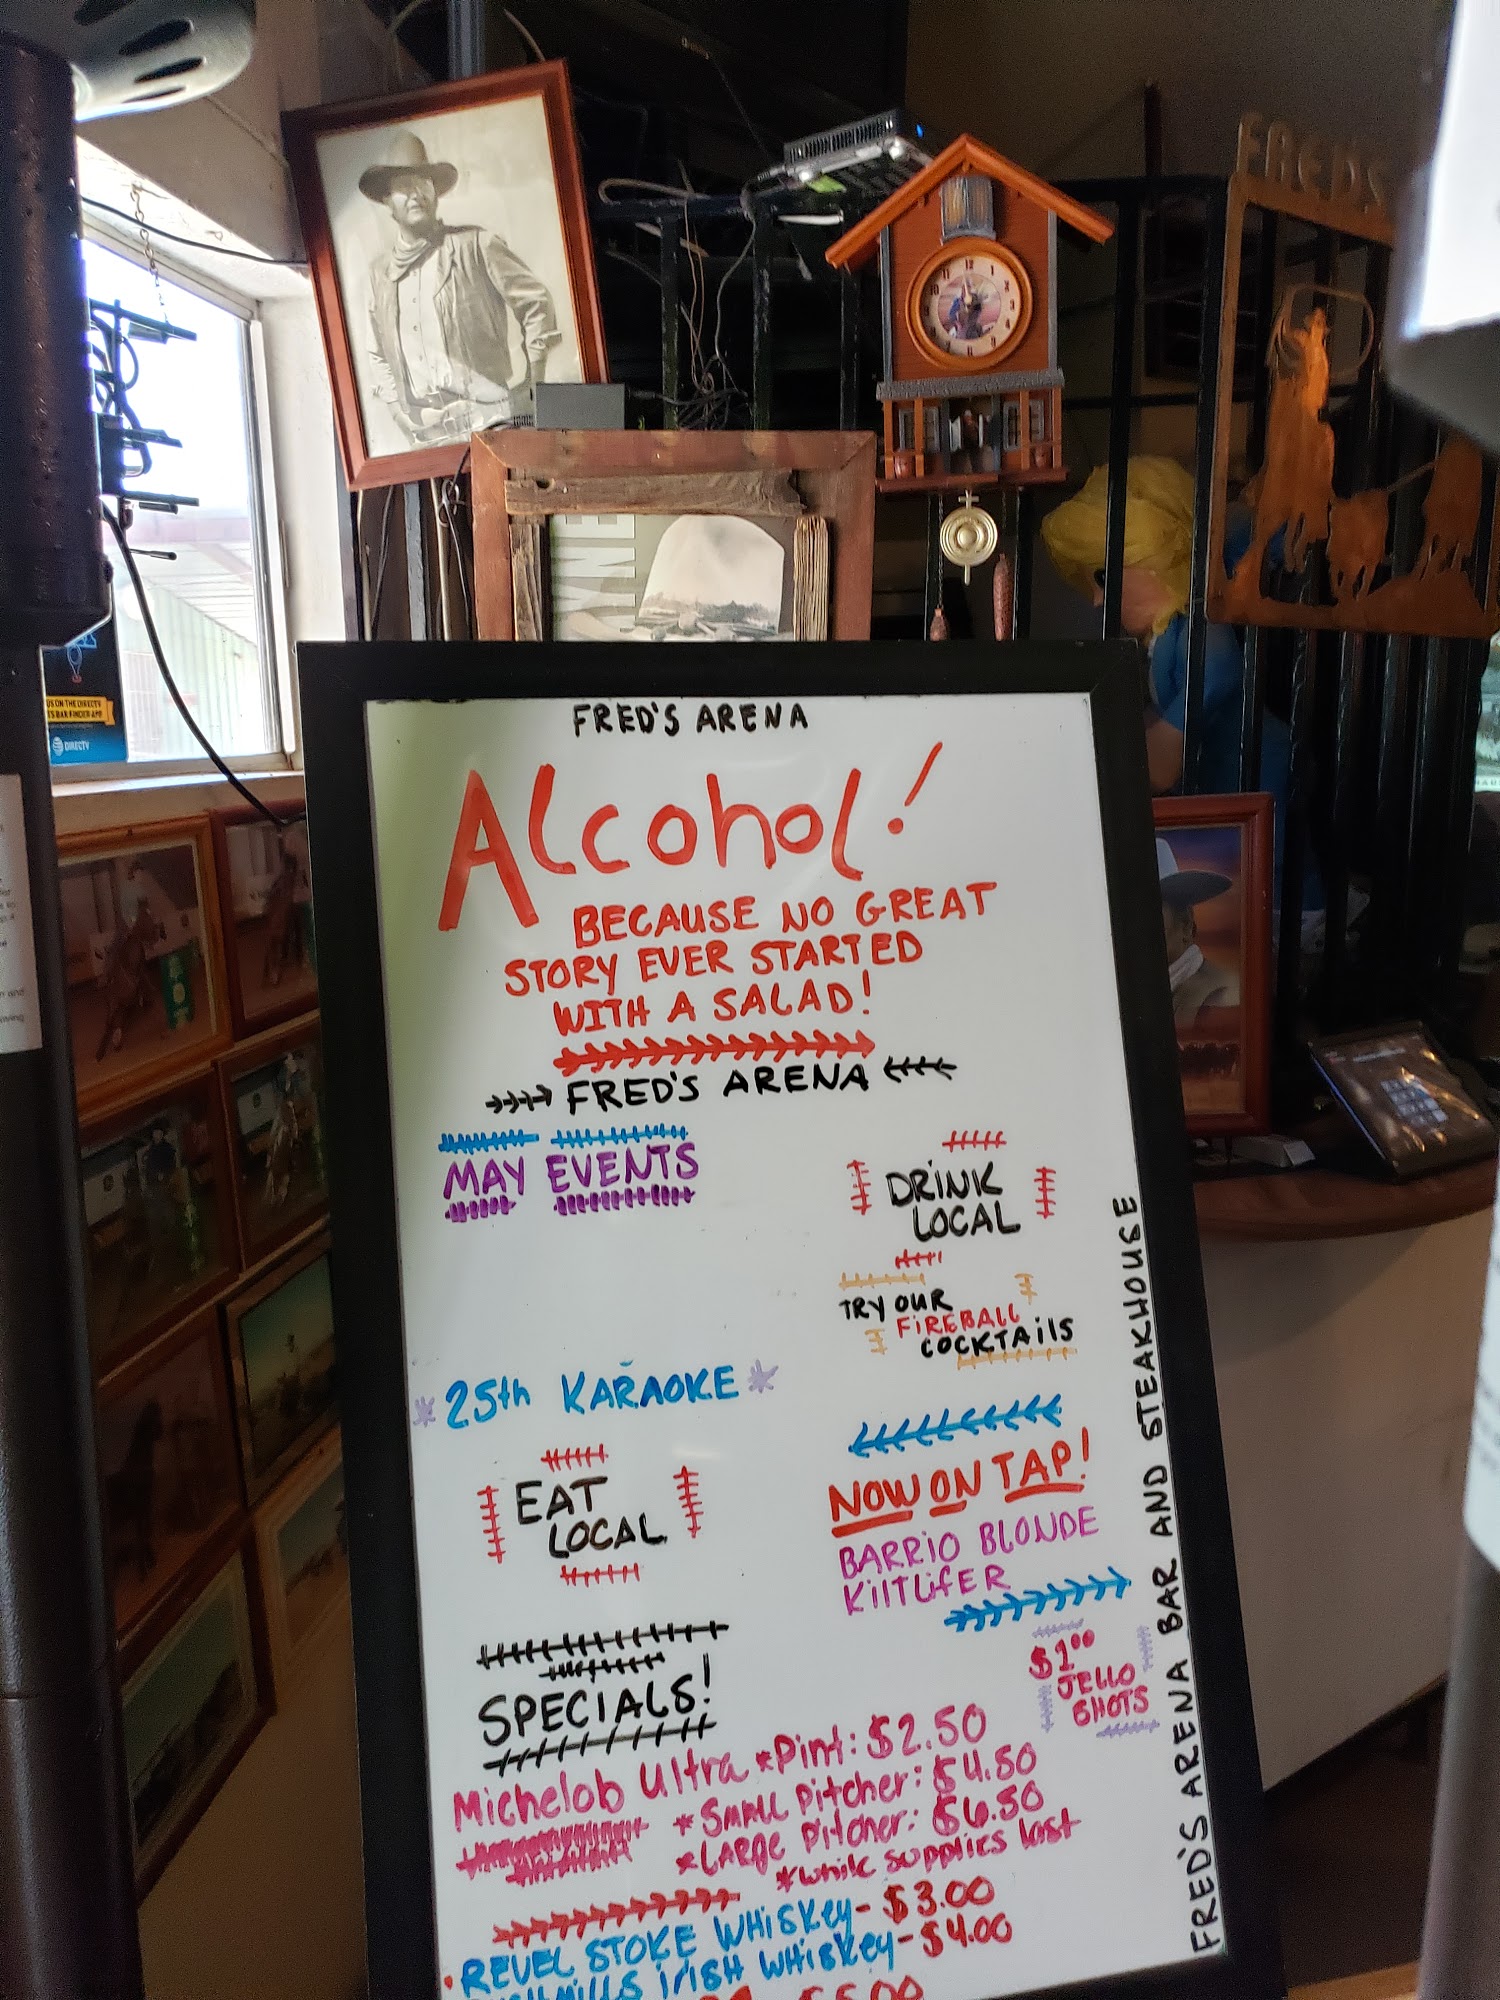 FRED'S
US ON THE DIRECTV
TS BAR FINDER APP
DIRECTV
FRED'S ARENA
Alcohol!
BECAUSE NO GREAT
STORY EVER STARTED
WITH A SALAD!
FRED'S ARENA
MAY EVENTS
25th KARAOKE
EAT
LOCAL
DRINK
LOCAL
TRY OUR
FIREBALL
COCKTAILS
NOW ON TAP!
BARRIO BLONDE
KILTLIFTER
$1.00
JELLO
SHOTS
SPECIALS!
Michelob Ultra *Pint: $2.50
*Small Pitcher: $4.50
*Large Pitcher: $6.50
*while supplies last
• REVEL STOKE WHISKEY - $3.00
IRISH WHISKEY - $4.00
$5.00
FRED'S ARENA BAR AND STEAKHOUSE